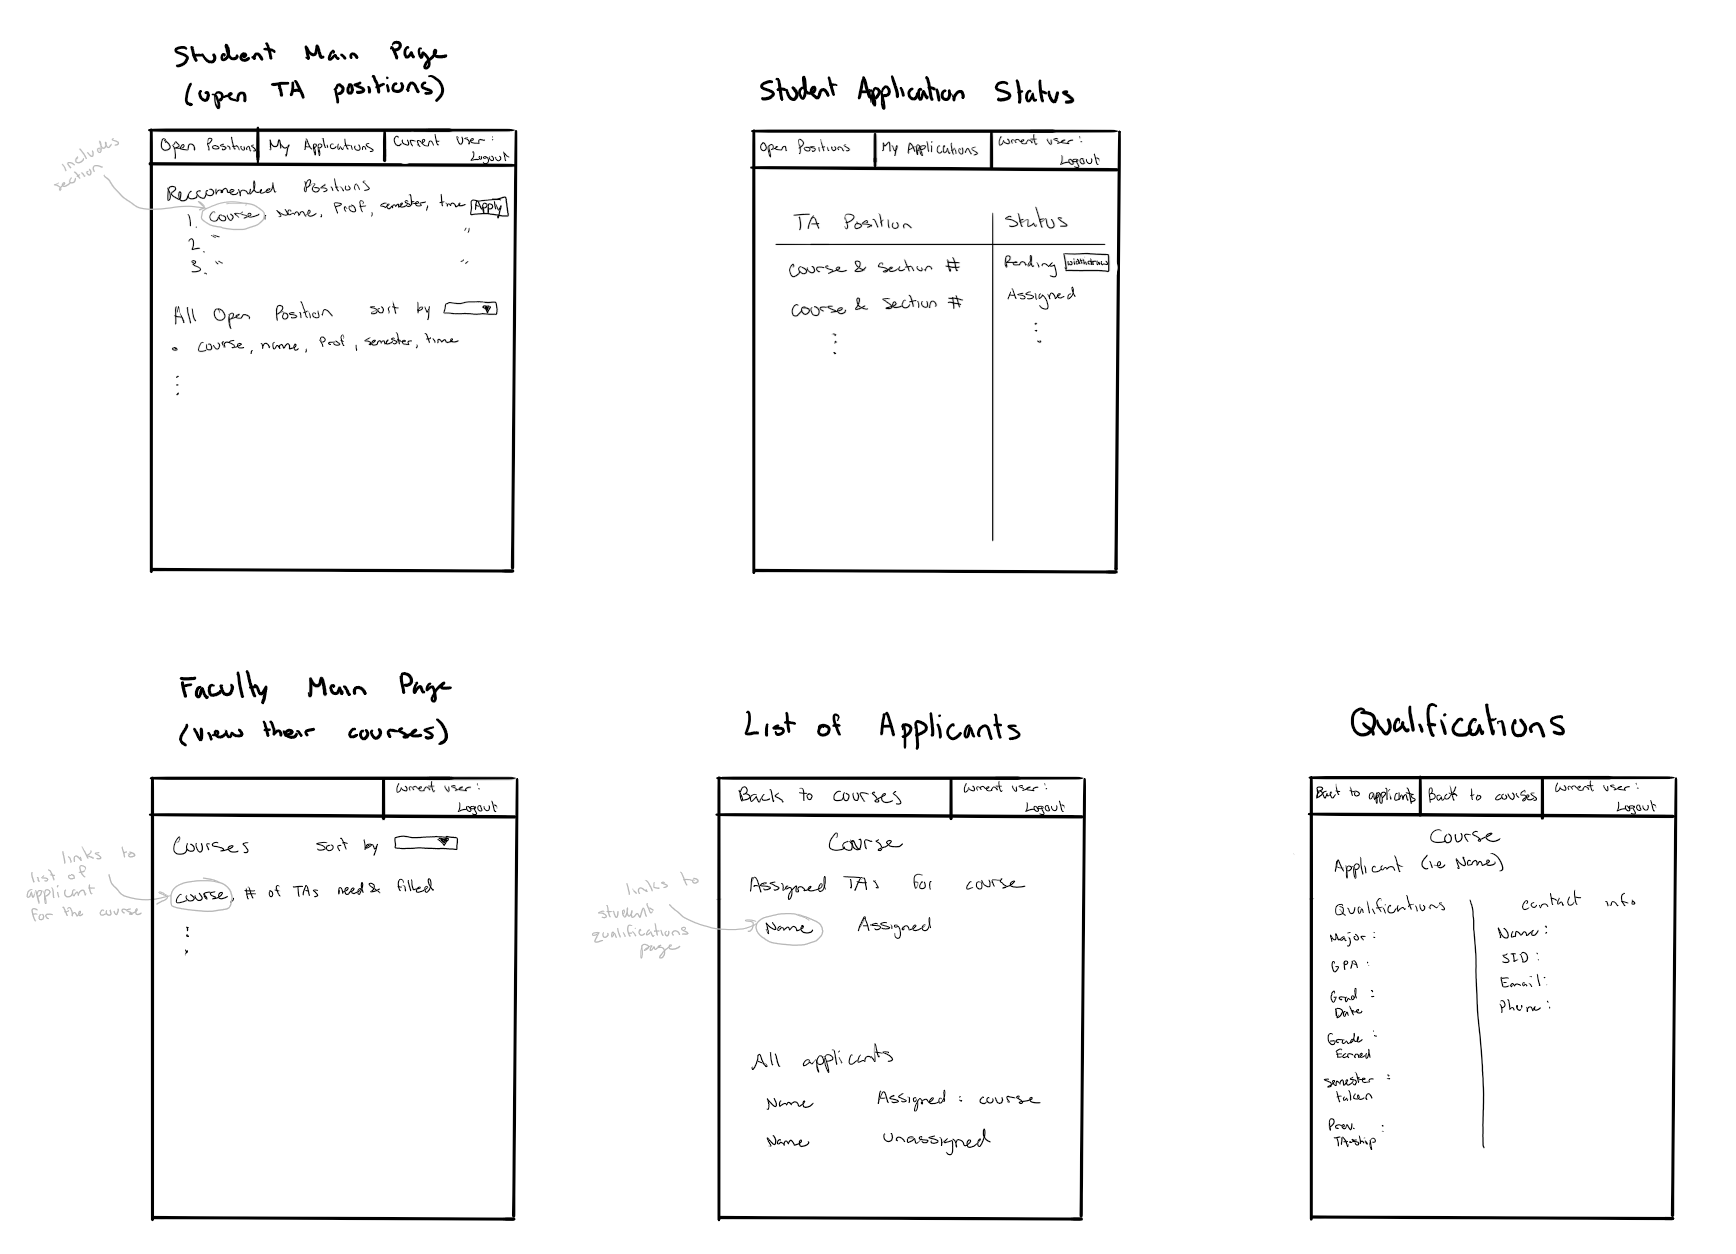 Student Main Page
(open TA positions)
includes
section
Open Positions My Applications Current User:
Logout
Reccomended Positions
1. Course, Name, Prof, semester, time Apply
2. " "
3. " "
All Open Position sort by
• course, name, Prof, semester, time
Student Application Status
Open Positions My Applications Current user:
Logout
TA Position Status
course & section # Pending widthdraw
course & section # Assigned
Faculty Main Page
(view their courses)
Current user:
Logout
Courses sort by
links to
list of
applicant
for the course
course, # of TAs need & filled
List of Applicants
Back to courses Current user:
Logout
Course
Assigned TAs for course
links to
student
qualifications
page
Name Assigned
All applicants
Name Assigned: course
Name Unassigned
Qualifications
Back to applicants Back to courses Current user:
Logout
Course
Applicant (ie Name)
Qualifications contact info
Major:
GPA:
Grad:
Date
Grade:
Earned
Semester:
taken
Prev.:
TA-ship
Name:
SID:
Email:
Phone: